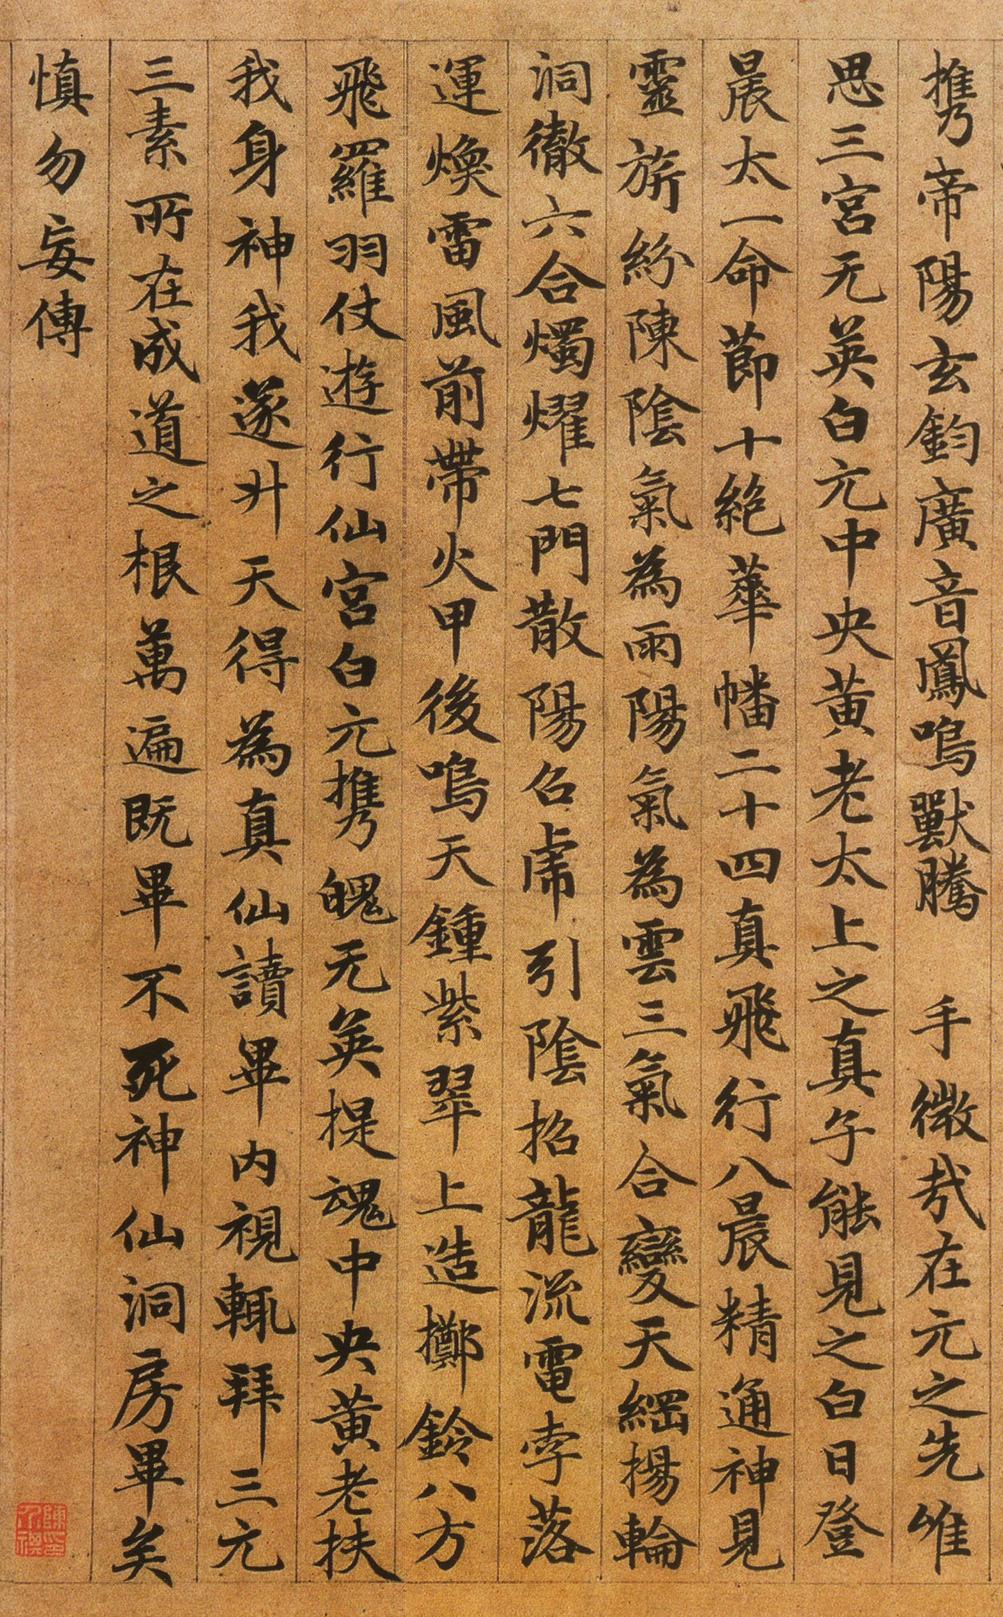 攜帝陽玄鈞廣音鳳鳴獸騰 手微哉在元之先唯
思三宮无英白元中央黃老太上之真兮能見之白日登
晨太一命節十絕華幡二十四真飛行八晨精通神見
靈旂紛陳陰氣為雨陽氣為雲三氣合變天綱揚輪
洞徹六合燭耀七門散陽召虎引陰招龍流電孛落
運煥雷風前帶火甲後鳴天鍾紫翠上造擲鈴八方
飛羅羽仗遊行仙宮白元攜魄无英提魂中央黃老扶
我身神我遂升天得為真仙讀畢內視輒拜三元
三素所在成道之根萬遍既畢不死神仙洞房畢矣
慎勿妄傳